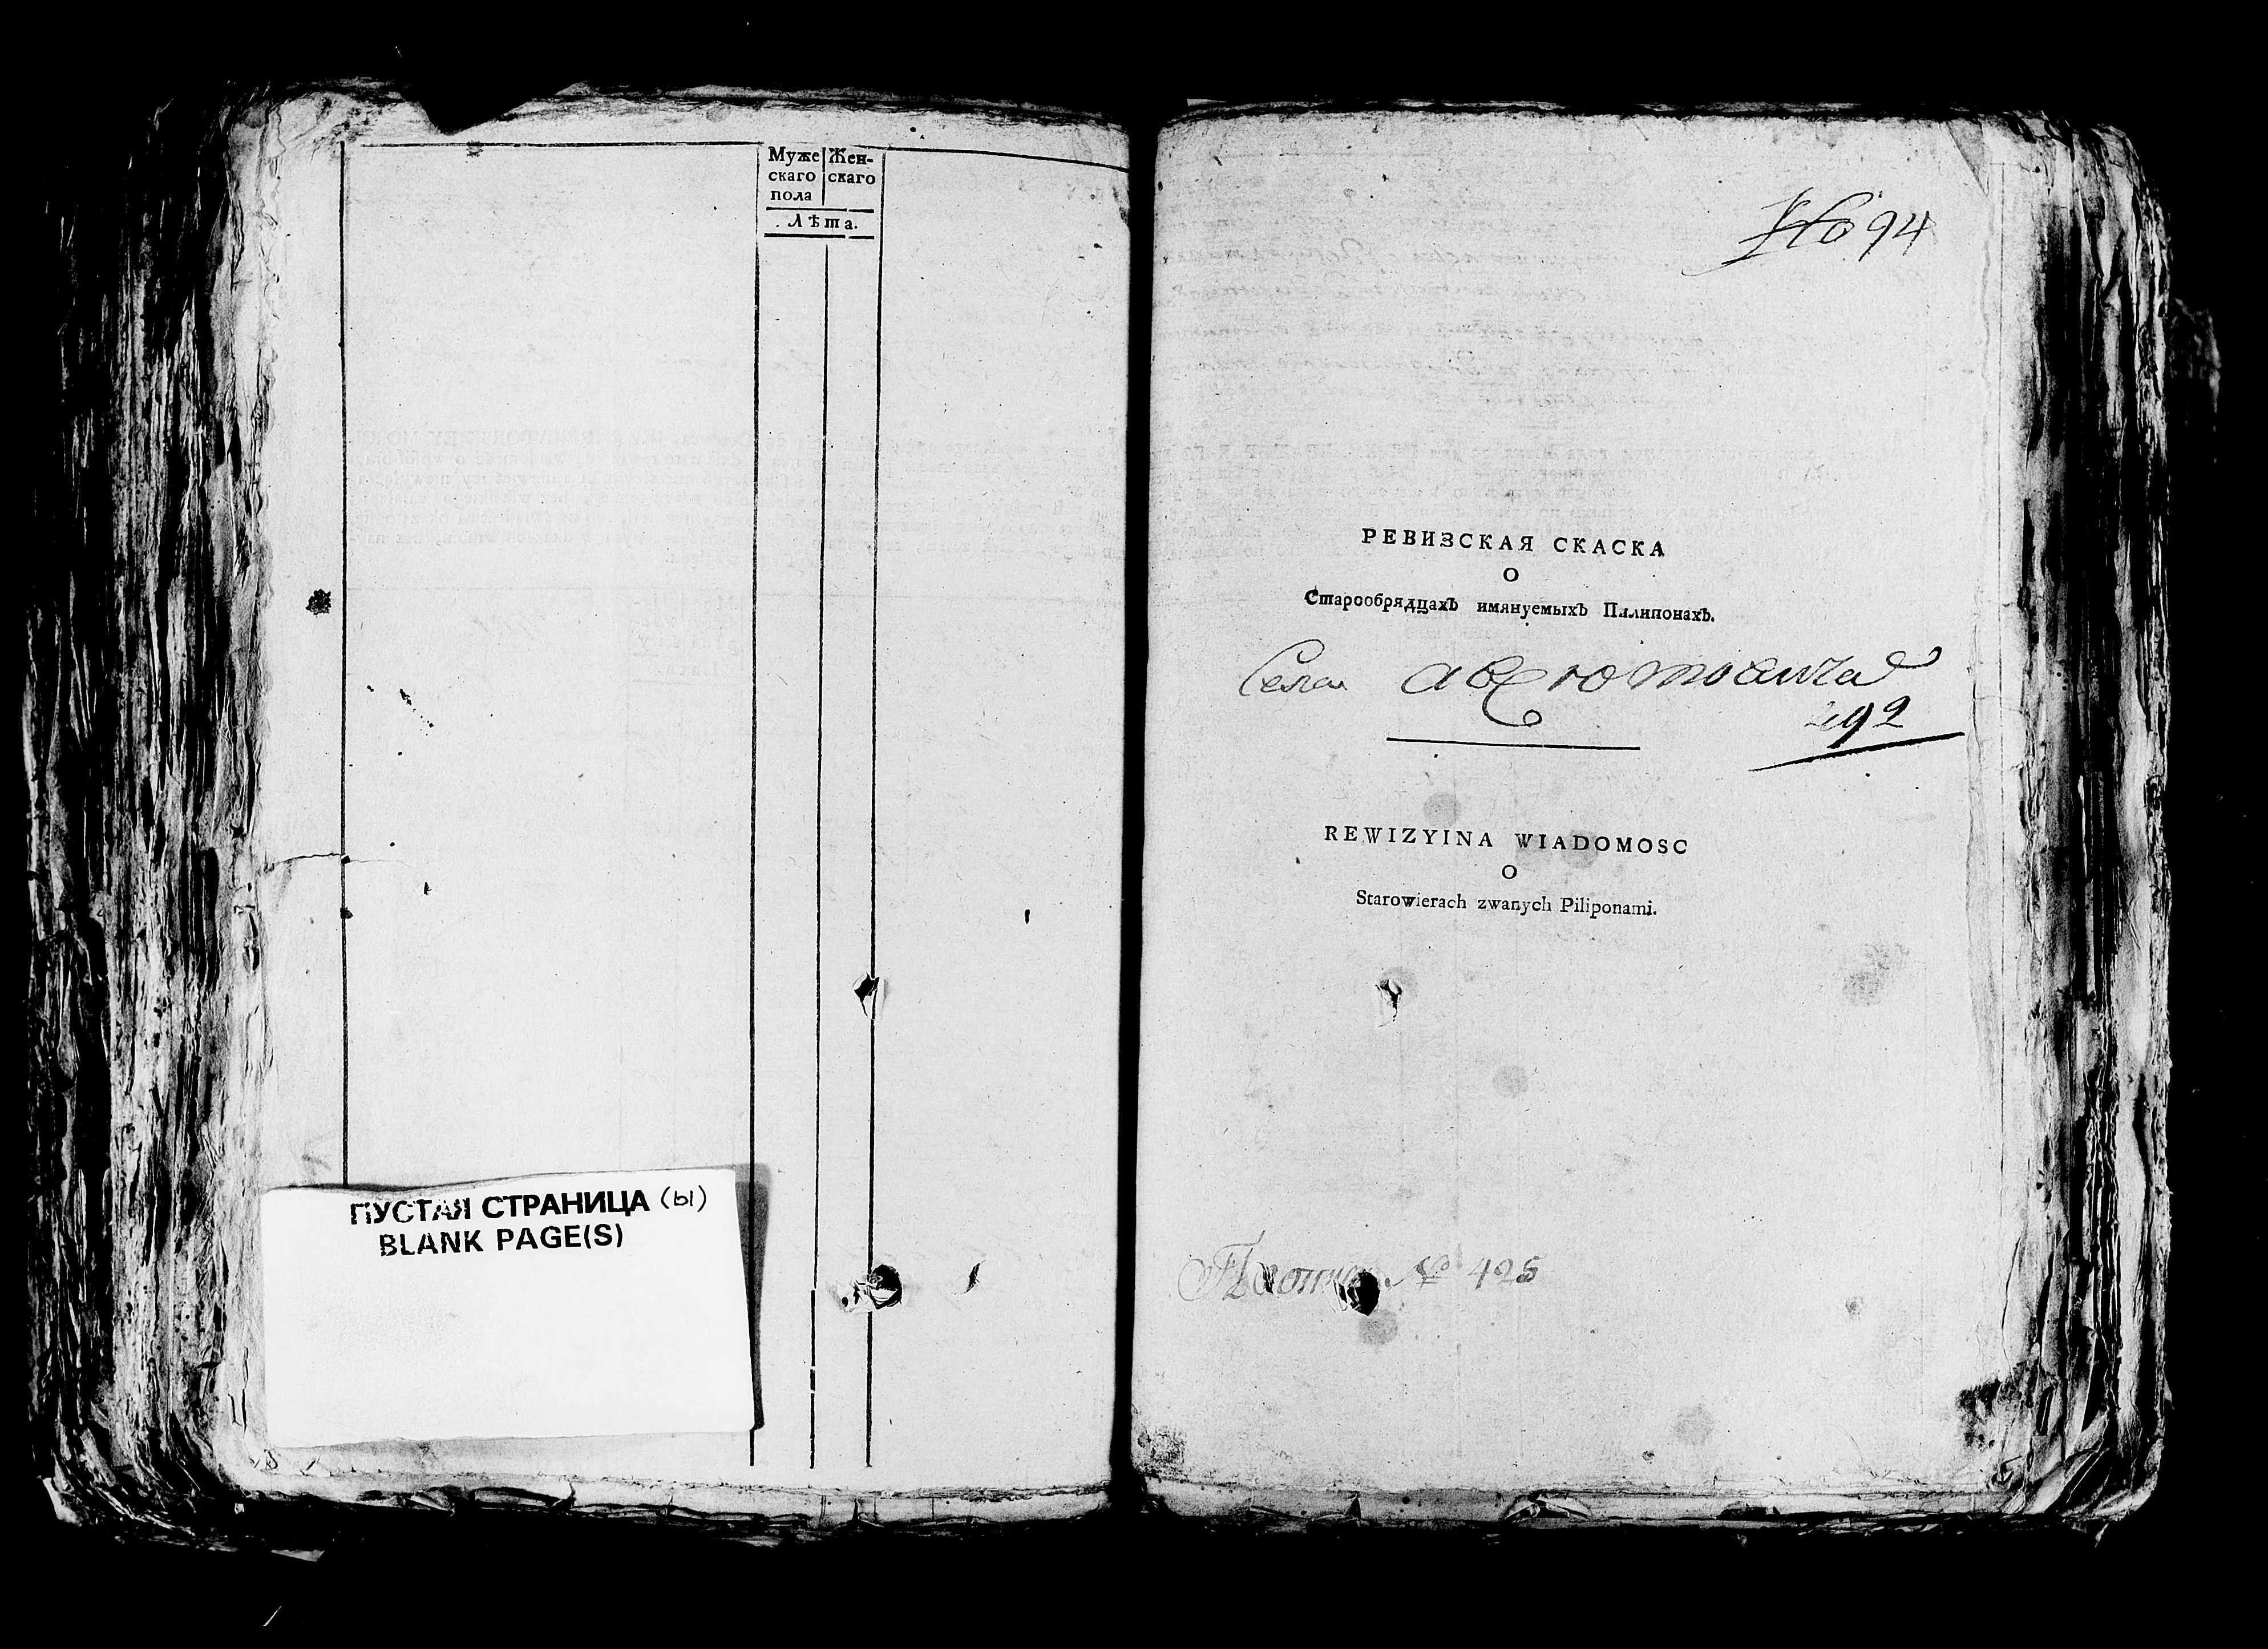 Муже Жен-
скаго скаго
пола
Лѣта.
ПУСТАЯ СТРАНИЦА (ы)
BLANK PAGE(S)
No 94
РЕВИЗСКАЯ СКАСКА
О
Старообрядцахъ имянуемыхъ Пилипонахъ.
Села
292
REWIZYINA WIADOMOSC
O
Starowierach zwanych Piliponami.
№ 425